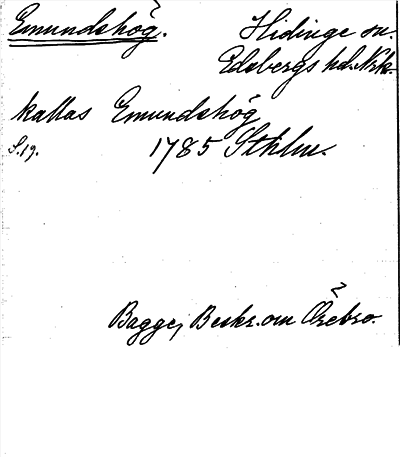 Emundshög. Hidinge sn.
Edsbergs hd. Nrk.
kallas Emundshög
S. 19. 1785 Sthlm.
Bagge, Beskr. om Örebro.